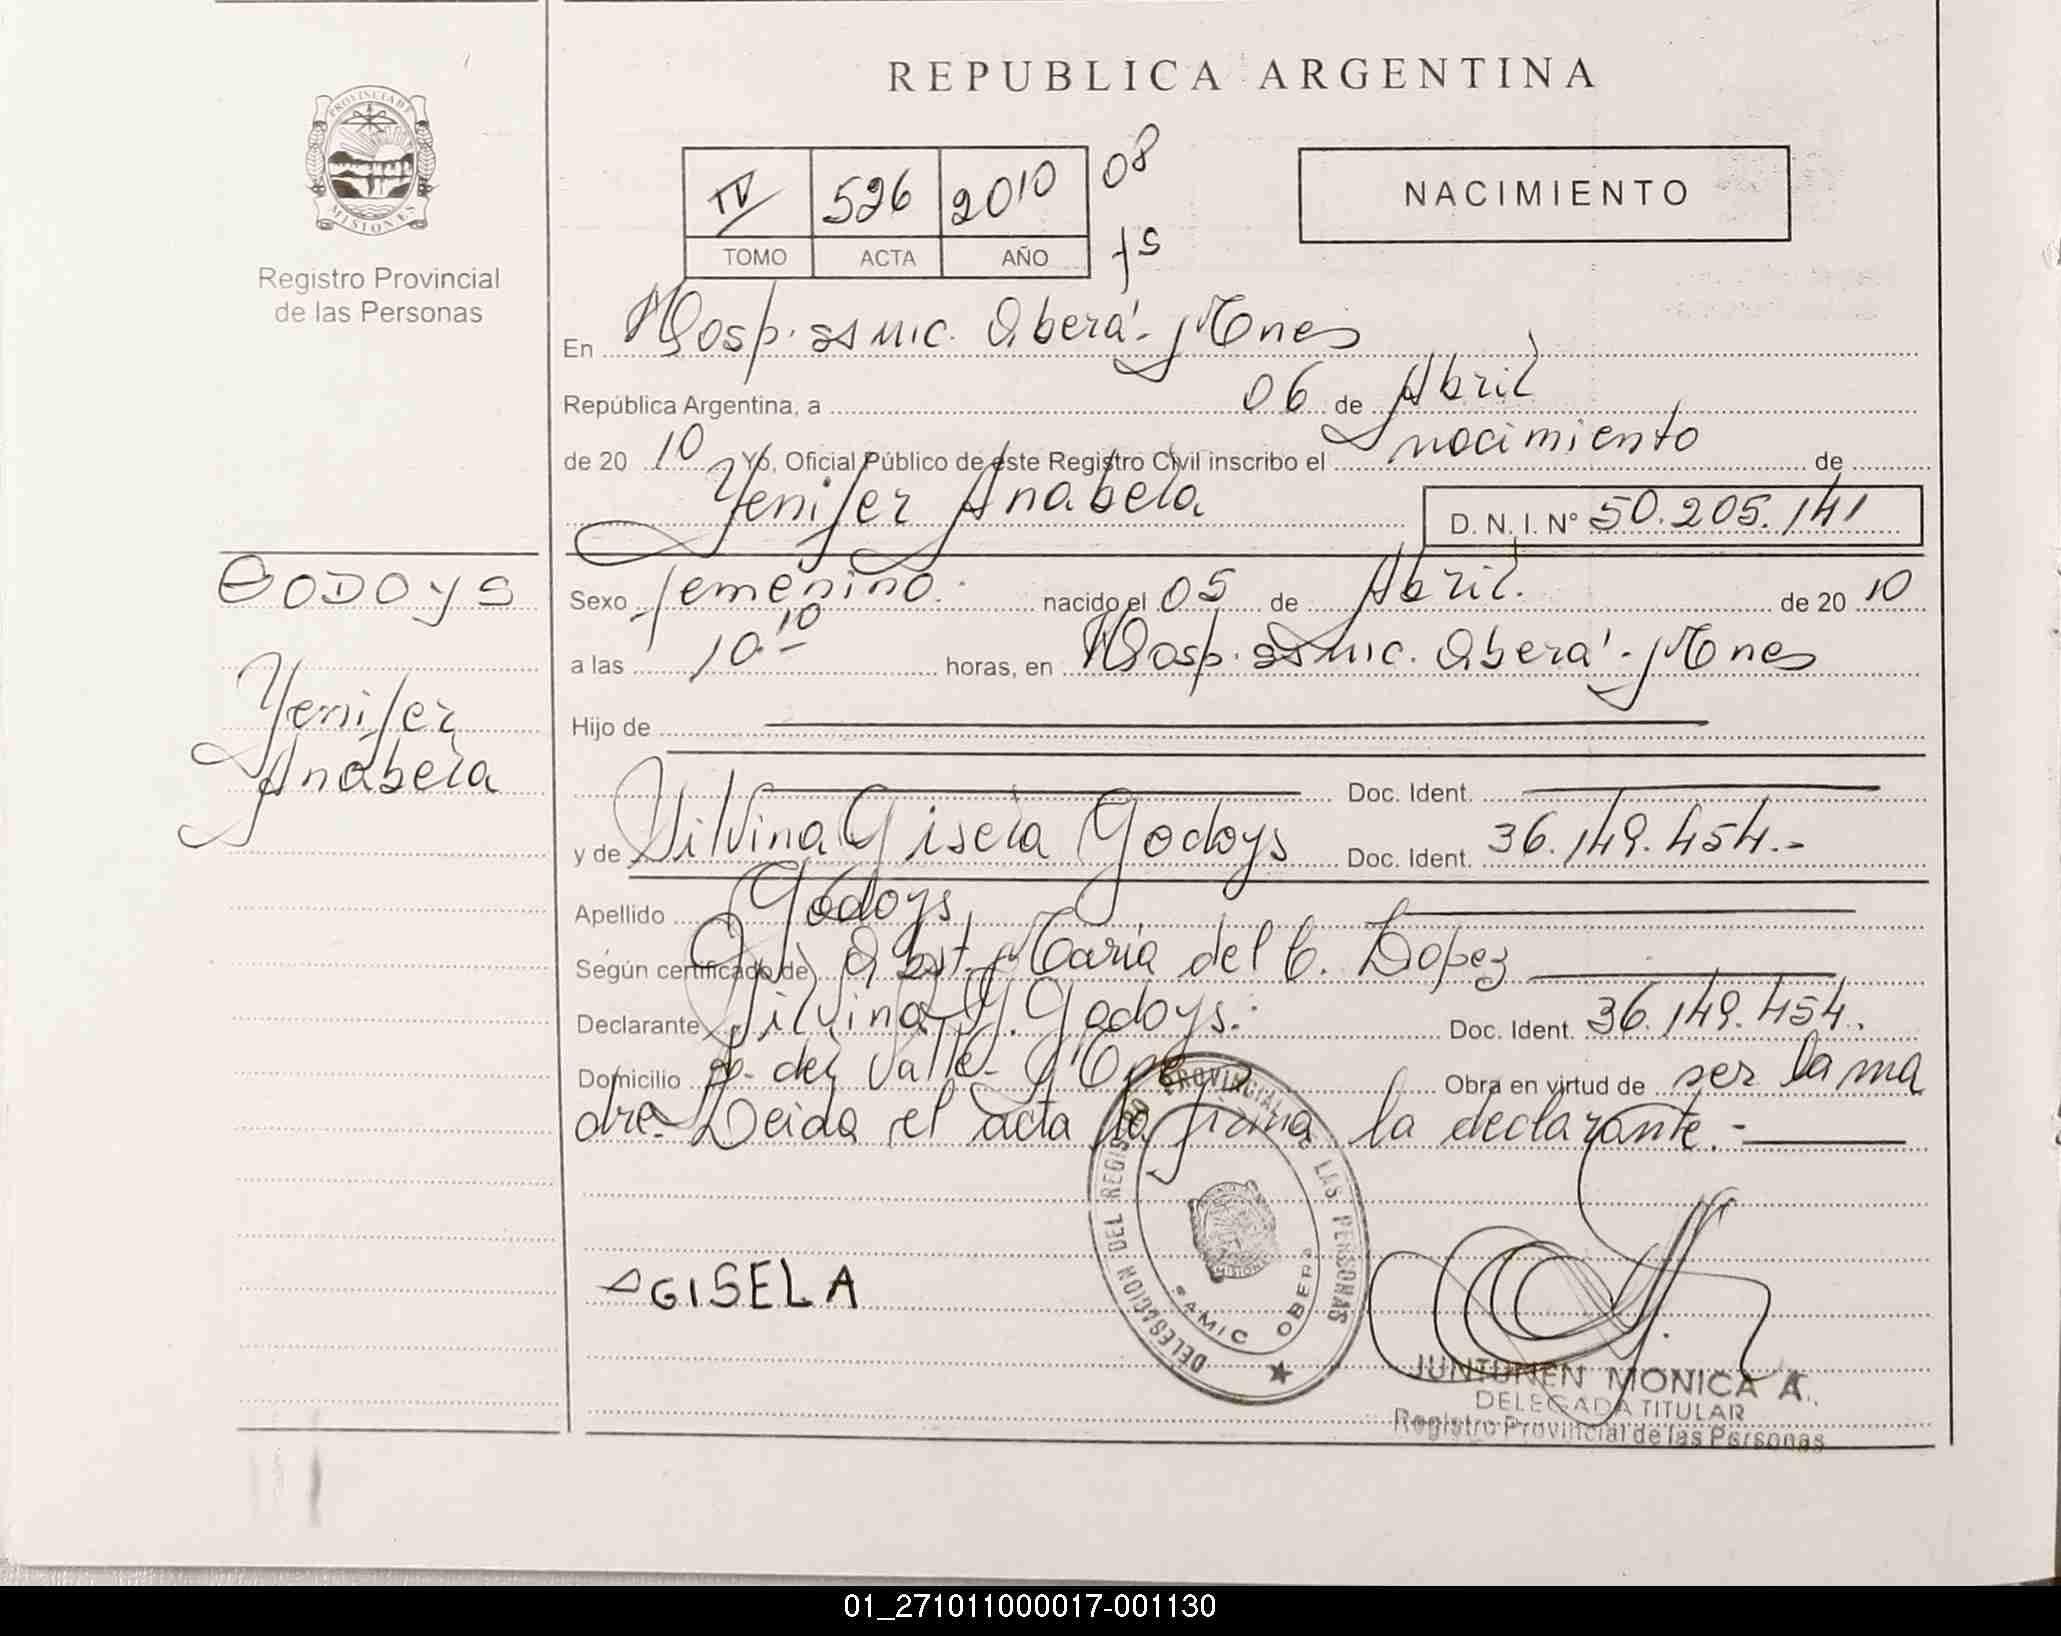 REPUBLICA ARGENTINA
PROVINCIA DE
MISIONES
Registro Provincial
de las Personas
IV 526 2010 08
TOMO ACTA AÑO fs
NACIMIENTO
En Hosp. ssmic. Oberá - Mnes
República Argentina, a 06 de Abril
de 20 10 Yo, Oficial Público de este Registro Civil inscribo el nacimiento de
Yenifer Anabela D. N. I. Nº 50.205.141
GODOYS
Yenifer
Anabela
Sexo femenino. nacido el 05 de Abril. de 20 10
a las 10.10 horas, en Hosp. ssmic. Oberá - Mnes
Hijo de
Doc. Ident.
y de Silvina Gisela Godoys Doc. Ident. 36.149.454.-
Apellido Godoys
Según certificado de Obst. Maria del C. Lopez
Declarante Silvina G. Godoys. Doc. Ident. 36.149.454.
Domicilio A. del Valle - Obra en virtud de ser la ma
dre - Leida el acta la firma la declarante.-
GISELA
DELEGACION DEL REGISTRO PROVINCIAL DE LAS PERSONAS
SAMIC OBERA
JUNTUNEN MONICA A.
DELEGADA TITULAR
Registro Provincial de las Personas
01_271011000017-001130